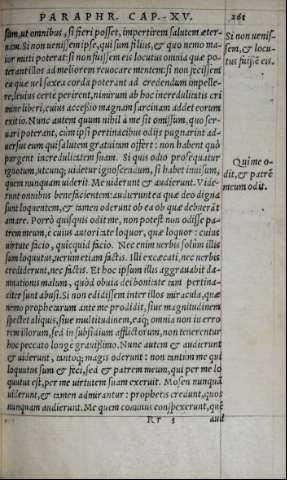 PARAPHR. CAP. XV. 261
sum, ut omnibus, si fieri posset, impertirem salutem æter-
nam. Si non uenissem ipse, qui sum filius, & quo nemo ma-
ior mitti poterat: si non fuissem eis locutus omnia quæ po-
terant illos ad meliorem reuocare mentem: si non fecissem
ea quæ uel saxea corda poterant ad credendum impelle-
re, huius certè perirent, nimirum ab hoc incredulitatis cri
mine liberi, cuius accessio magnam sarcinam addet eorum
exitio. Nunc autem quum nihil à me sit omissum, quo ser-
uari poterant, cùm ipsi pertinacibus odijs pugnarint ad-
uersus eum qui salutem gratuitam offert: non habent quò
purgent incredulitatem suam. Si quis odio prosequatur
ignotum, utcunq; uidetur ignoscendum, si habet inuisum,
quem nunquam uiderit. Me uiderunt & audierunt. Vide-
runt omnibus benefacientem: audierunt ea quæ deo digna
sunt loquentem, & tamen oderunt ob ea ob quæ debuerāt
amare. Porrò quisquis odit me, non potest non odisse pa-
trem meum, è cuius autoritate loquor, quæ loquor: cuius
uirtute facio, quicquid facio. Nec enim uerbis solùm illis
sum loquutus, uerum etiam factis. Illi excæcati, nec uerbis
crediderunt, nec factis. Et hoc ipsum illis aggrauabit da-
mnationis malum, quòd obuia dei bonitate tam pertina-
citer sunt abusi. Si non edidissem inter illos miracula, quæ
nemo prophetarum ante me prodidit, siue magnitudinem
spectet aliquis, siue multitudinem, eaq; omnia non in erro
rem illorum, sed in subsidium afflictorum, non tenerentur
hoc peccato longè grauissimo. Nunc autem & audierunt
& uiderunt, tantoq; magis oderunt: non tantùm me qui
loquutus sum & feci, sed & patrem meum, qui per me lo
quutus est, per me uirtutem suam exeruit. Mosen nunquā
uiderunt, & tamen admirantur: prophetis credunt, quos
nunquam audierunt. Me quem comitus conspexerunt, quē
Rr 3 aud
Si non uenis-
sem, & locu-
tus fuissē eis.
Qui me o-
dit, & patrē
meum odit.